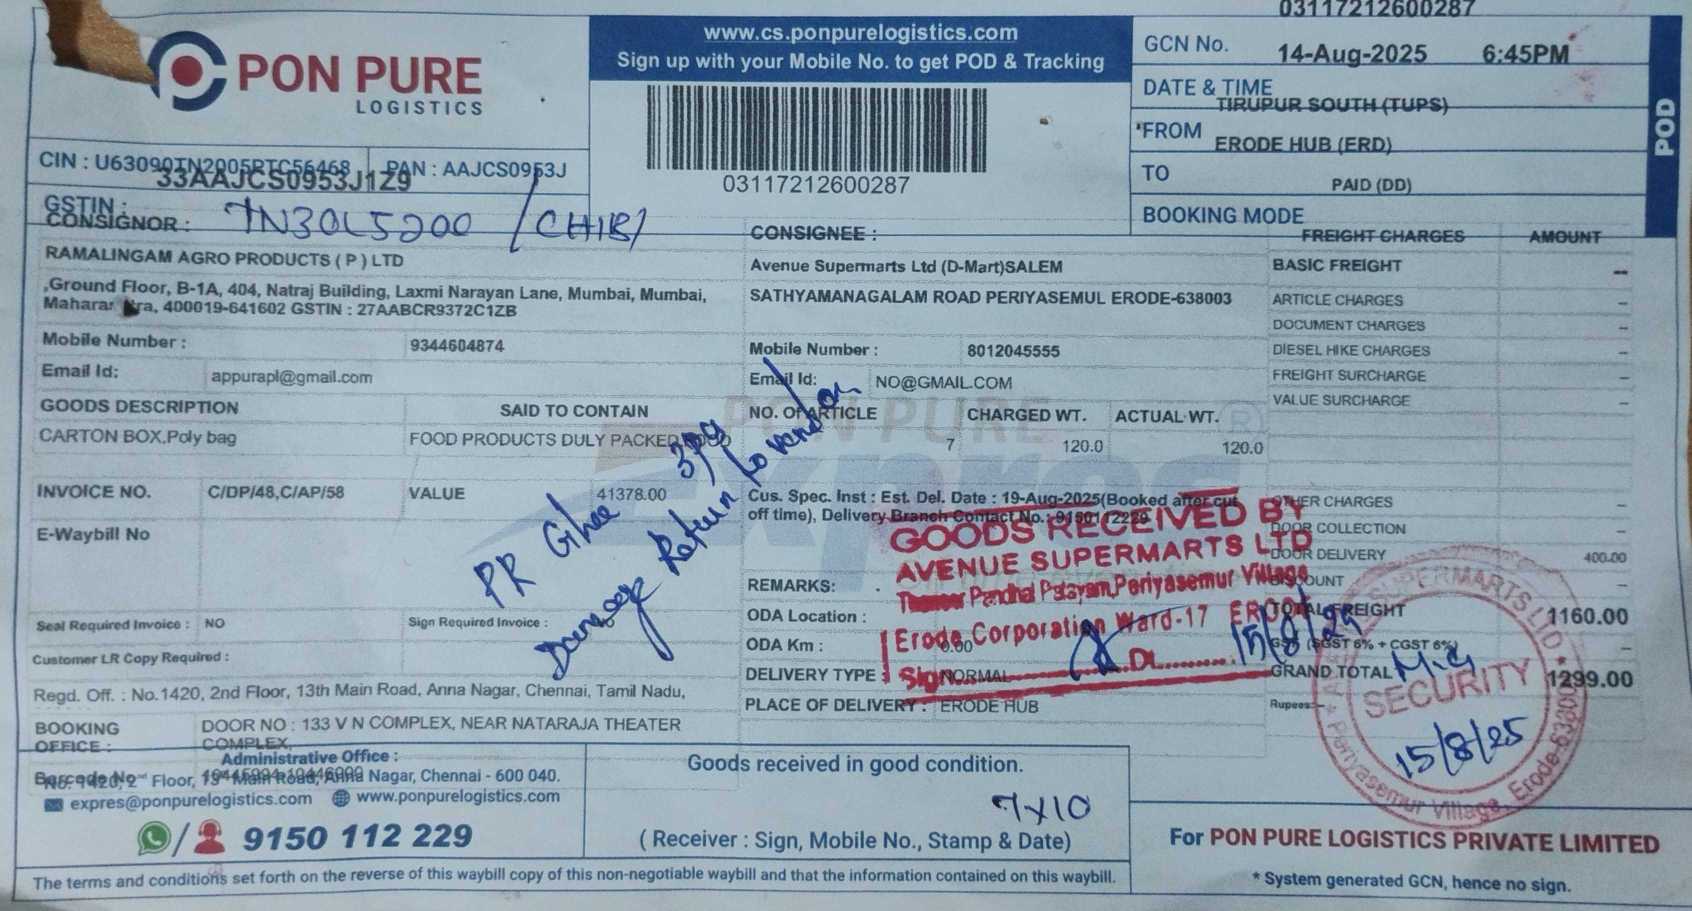 03117212600287
PON PURE
LOGISTICS
www.cs.ponpurelogistics.com
Sign up with your Mobile No. to get POD & Tracking
03117212600287
GCN No.
14-Aug-2025 6:45PM
DATE & TIME
TIRUPUR SOUTH (TUPS)
*FROM
ERODE HUB (ERD)
TO
PAID (DD)
BOOKING MODE
POD
CIN : U63090TN2005PTC56468 PAN : AAJCS0953J
33AAJCS0953J1Z9
GSTIN :
CONSIGNOR : TN30L5200 /CHIB/
RAMALINGAM AGRO PRODUCTS ( P ) LTD
,Ground Floor, B-1A, 404, Natraj Building, Laxmi Narayan Lane, Mumbai, Mumbai,
400019-641602 GSTIN : 27AABCR9372C1ZB
Mobile Number : 9344604874
Email Id: appurapl@gmail.com
CONSIGNEE :
Avenue Supermarts Ltd (D-Mart)SALEM
SATHYAMANAGALAM ROAD PERIYASEMUL ERODE-638003
Mobile Number : 8012045555
Email Id: NO@GMAIL.COM
GOODS DESCRIPTION SAID TO CONTAIN NO. Of ARTICLE CHARGED WT. ACTUAL WT.
CARTON BOX,Poly bag FOOD PRODUCTS DULY PACKED FOOD 7 120.0 120.0
INVOICE NO. C/DP/48,C/AP/58 VALUE 41378.00
E-Waybill No
Cus. Spec. Inst : Est. Del. Date : 19-Aug-2025(Booked after cut
off time), Delivery Branch Contact No.: 9150112229
PR Ghee
Damage Return to vendor
REMARKS:
ODA Location :
ODA Km : 0.00
DELIVERY TYPE : NORMAL
PLACE OF DELIVERY : ERODE HUB
GOODS RECEIVED BY
AVENUE SUPERMARTS LTD
Pandhal Palayam,Periyasemur Village
Erode Corporation Ward-17 ERODE
Sign Dt. 15/8/25
Seal Required Invoice : NO Sign Required Invoice : NO
Customer LR Copy Required :
Regd. Off. : No.1420, 2nd Floor, 13th Main Road, Anna Nagar, Chennai, Tamil Nadu,
BOOKING OFFICE : DOOR NO : 133 V N COMPLEX, NEAR NATARAJA THEATER
COMPLEX,
FREIGHT CHARGES AMOUNT
BASIC FREIGHT --
ARTICLE CHARGES –
DOCUMENT CHARGES –
DIESEL HIKE CHARGES –
FREIGHT SURCHARGE –
VALUE SURCHARGE –
OTHER CHARGES –
DOOR COLLECTION –
DOOR DELIVERY 400.00
DISCOUNT –
TOTAL FREIGHT 1160.00
GST (SGST 6% + CGST 6%) –
GRAND TOTAL 1299.00
Rupees:-
SUPERMARTS LTD
SECURITY
15/8/25
Periyasemur Village, Erode-638003
Administrative Office :
No. 1420, 2nd Floor, 13th Main Road, Anna Nagar, Chennai - 600 040.
Barcode No
expres@ponpurelogistics.com www.ponpurelogistics.com
/ 9150 112 229
Goods received in good condition.
7x10
( Receiver : Sign, Mobile No., Stamp & Date)
For PON PURE LOGISTICS PRIVATE LIMITED
* System generated GCN, hence no sign.
The terms and conditions set forth on the reverse of this waybill copy of this non-negotiable waybill and that the information contained on this waybill.
PON PURE
Expres